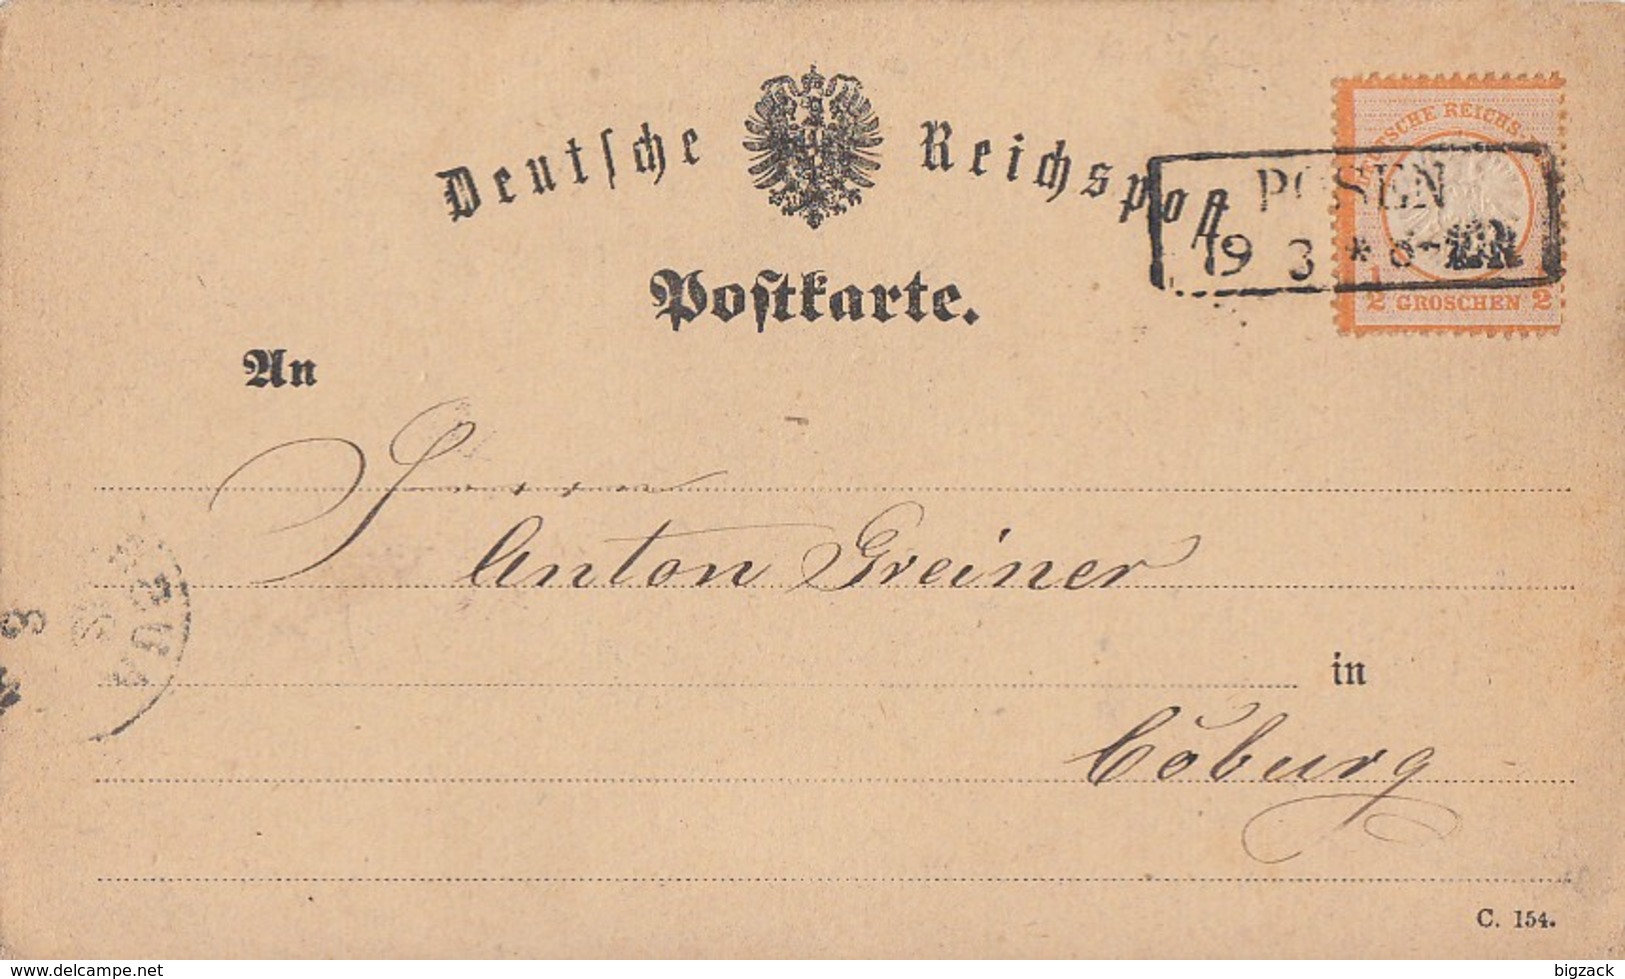 Deutsche Reichspost
DEUTSCHE REICHS-
POSEN
19 3 *
1/2 GROSCHEN 2
Postkarte.
An
Herrn
Anton Greiner
in
Coburg
C. 154.
www.delcampe.net
bigzack